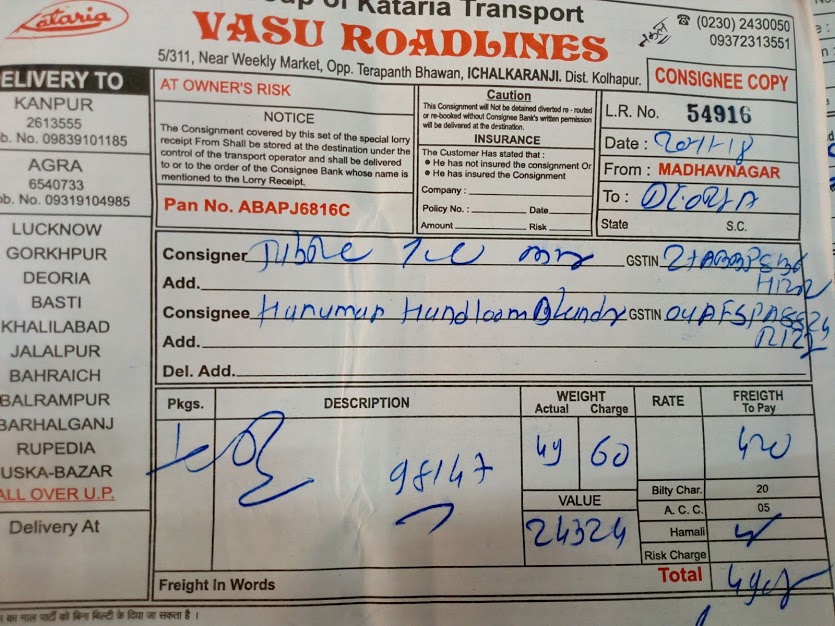 Kataria
Group of Kataria Transport
VASU ROADLINES
(0230) 2430050
09372313551
5/311, Near Weekly Market, Opp. Terapanth Bhawan, ICHALKARANJI. Dist. Kolhapur.
CONSIGNEE COPY
ELIVERY TO
KANPUR
2613555
ob. No. 09839101185
AGRA
6540733
ob No. 09319104985
LUCKNOW
GORKHPUR
DEORIA
BASTI
KHALILABAD
JALALPUR
BAHRAICH
BALRAMPUR
BARHALGANJ
RUPEDIA
USKA-BAZAR
ALL OVER U.P.
Delivery At
AT OWNER'S RISK
NOTICE
The Consignment covered by this set of the special lorry
receipt From Shall be stored at the destination under the
control of the transport operator and shall be delivered
to or to the order of the Consignee Bank whose name is
mentioned to the Lorry Receipt.
Pan No. ABAPJ6816C
Caution
This Consignment will Not be detained diverted re - routed
or re-booked without Consignee Bank's written permission
will be delivered at the destination.
INSURANCE
The Customer Has stated that :
● He has not insured the consignment Or
● He has insured the Consignment
Company :
Policy No. : Date
Amount Risk
L.R. No. 54916
Date :
From : MADHAVNAGAR
To : DEORIA
State S.C.
Consigner GSTIN
Add.
Consignee Hanuman Handloom GSTIN
Add.
Del. Add.
Pkgs. DESCRIPTION WEIGHT RATE FREIGTH
Actual Charge To Pay
98147 49 60 420
VALUE
24324
Bilty Char. 20
A. C. C. 05
Hamali
Risk Charge
Total
Freight In Words
का माल पार्टी को बिना बिल्टी के दिया जा सकता है ।